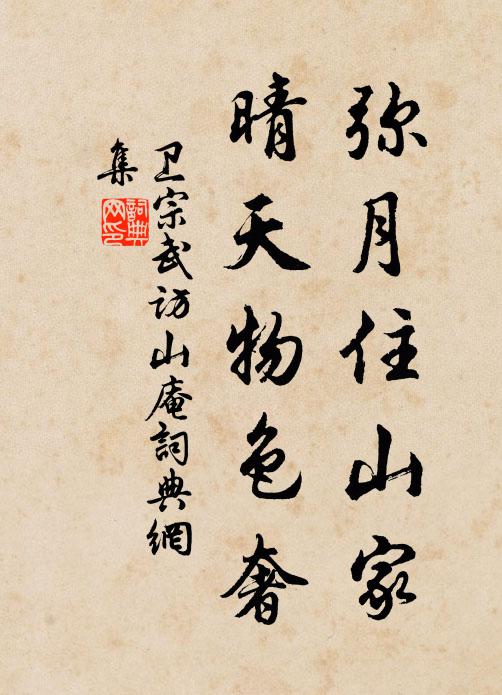 弥月住山家
晴天物色奢
卫宗武访山庵詞典網
集
詞典网印